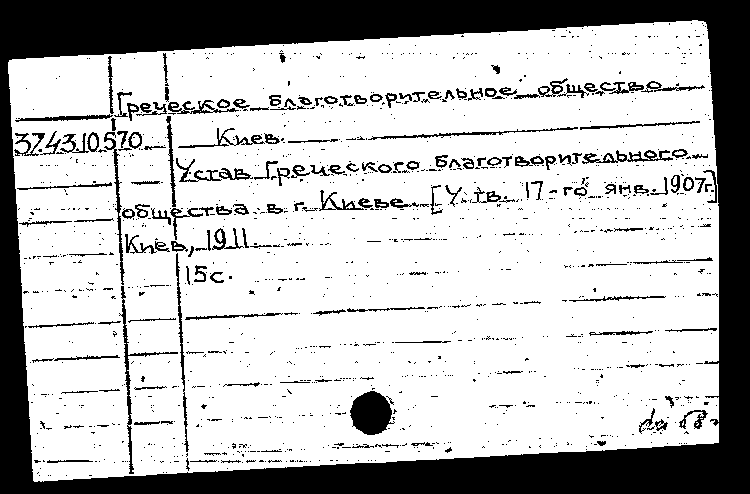 Греческое благотворительное общество
37.43.10.570 Киев.
Устав Греческого благотворительного
общества в г. Киеве. [Утв. 17-го янв. 1907г.]
Киев, 1911.
15с.